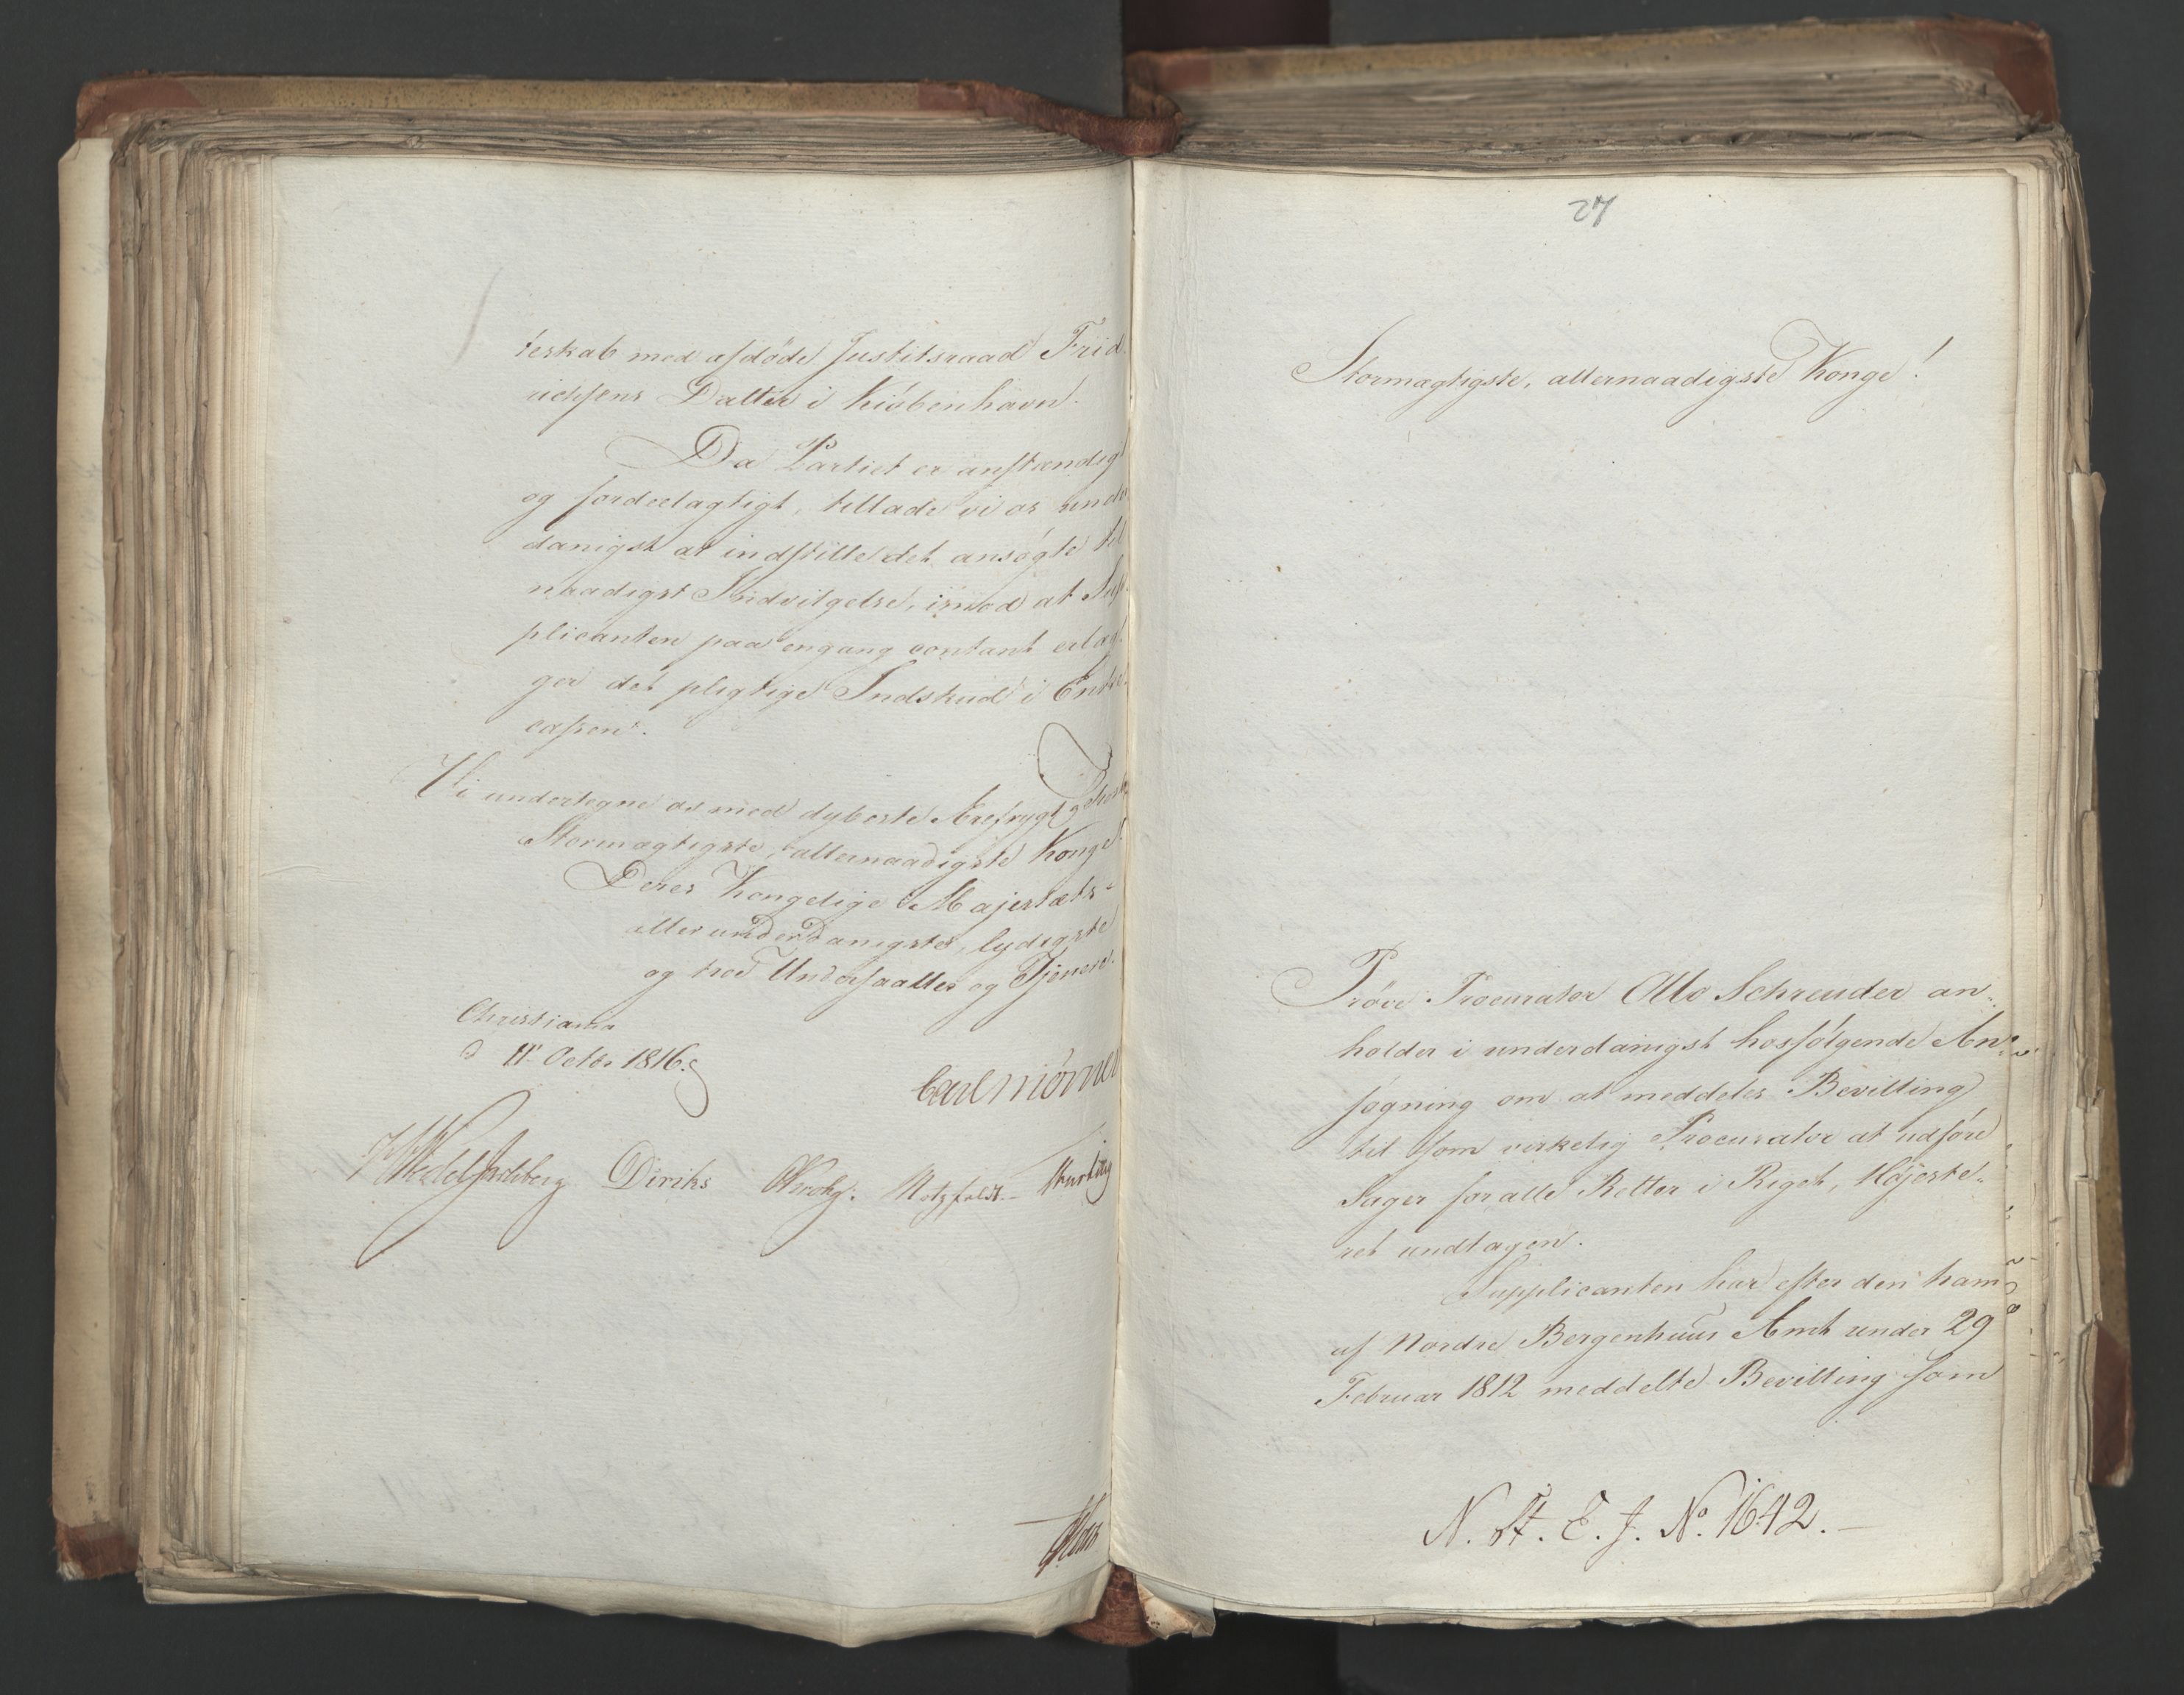 teskab med afdöde Justitsraad Frid
richsens Datter i Kiöbenhavn.
Da Partiet er anstændigt
og fordeelagtigt, tillade vi os unde
danigst at indstille det ansøgte til
naadigst Indvilgelse, imod at Sup-
plicanten paa engang contant erlæg-
ger det pligtige Indskud i Enke-
cassen.
Vi undertegne os med dybeste Ærefrygt
Stormægtigste, allernaadigste Konge!
Deres Kongelige Majestæts
allerunderdanigste, lydigste
og troe Undersaatter og Tjenere.
Christiania
d 11t Octbr 1816.
Carl Mörner
Wedel Jarlsberg Diriks Krohg. Motzfeldt
27
Stormægtigste, allernaadigste Konge!
Pröve Procurator Otto Schreuder an-
holder i underdanigst hosfölgende An-
søgning om at meddeles Bevilling
til som virkelig Procurator at udföre
Sager for alle Retter i Riget, Höjeste-
ret undtagen.
Supplicanten har efter den ham
af Nordre Bergenhuus Amt under 29
Februar 1812 meddelte Bevilling som
N. St. E. J. No. 1642.